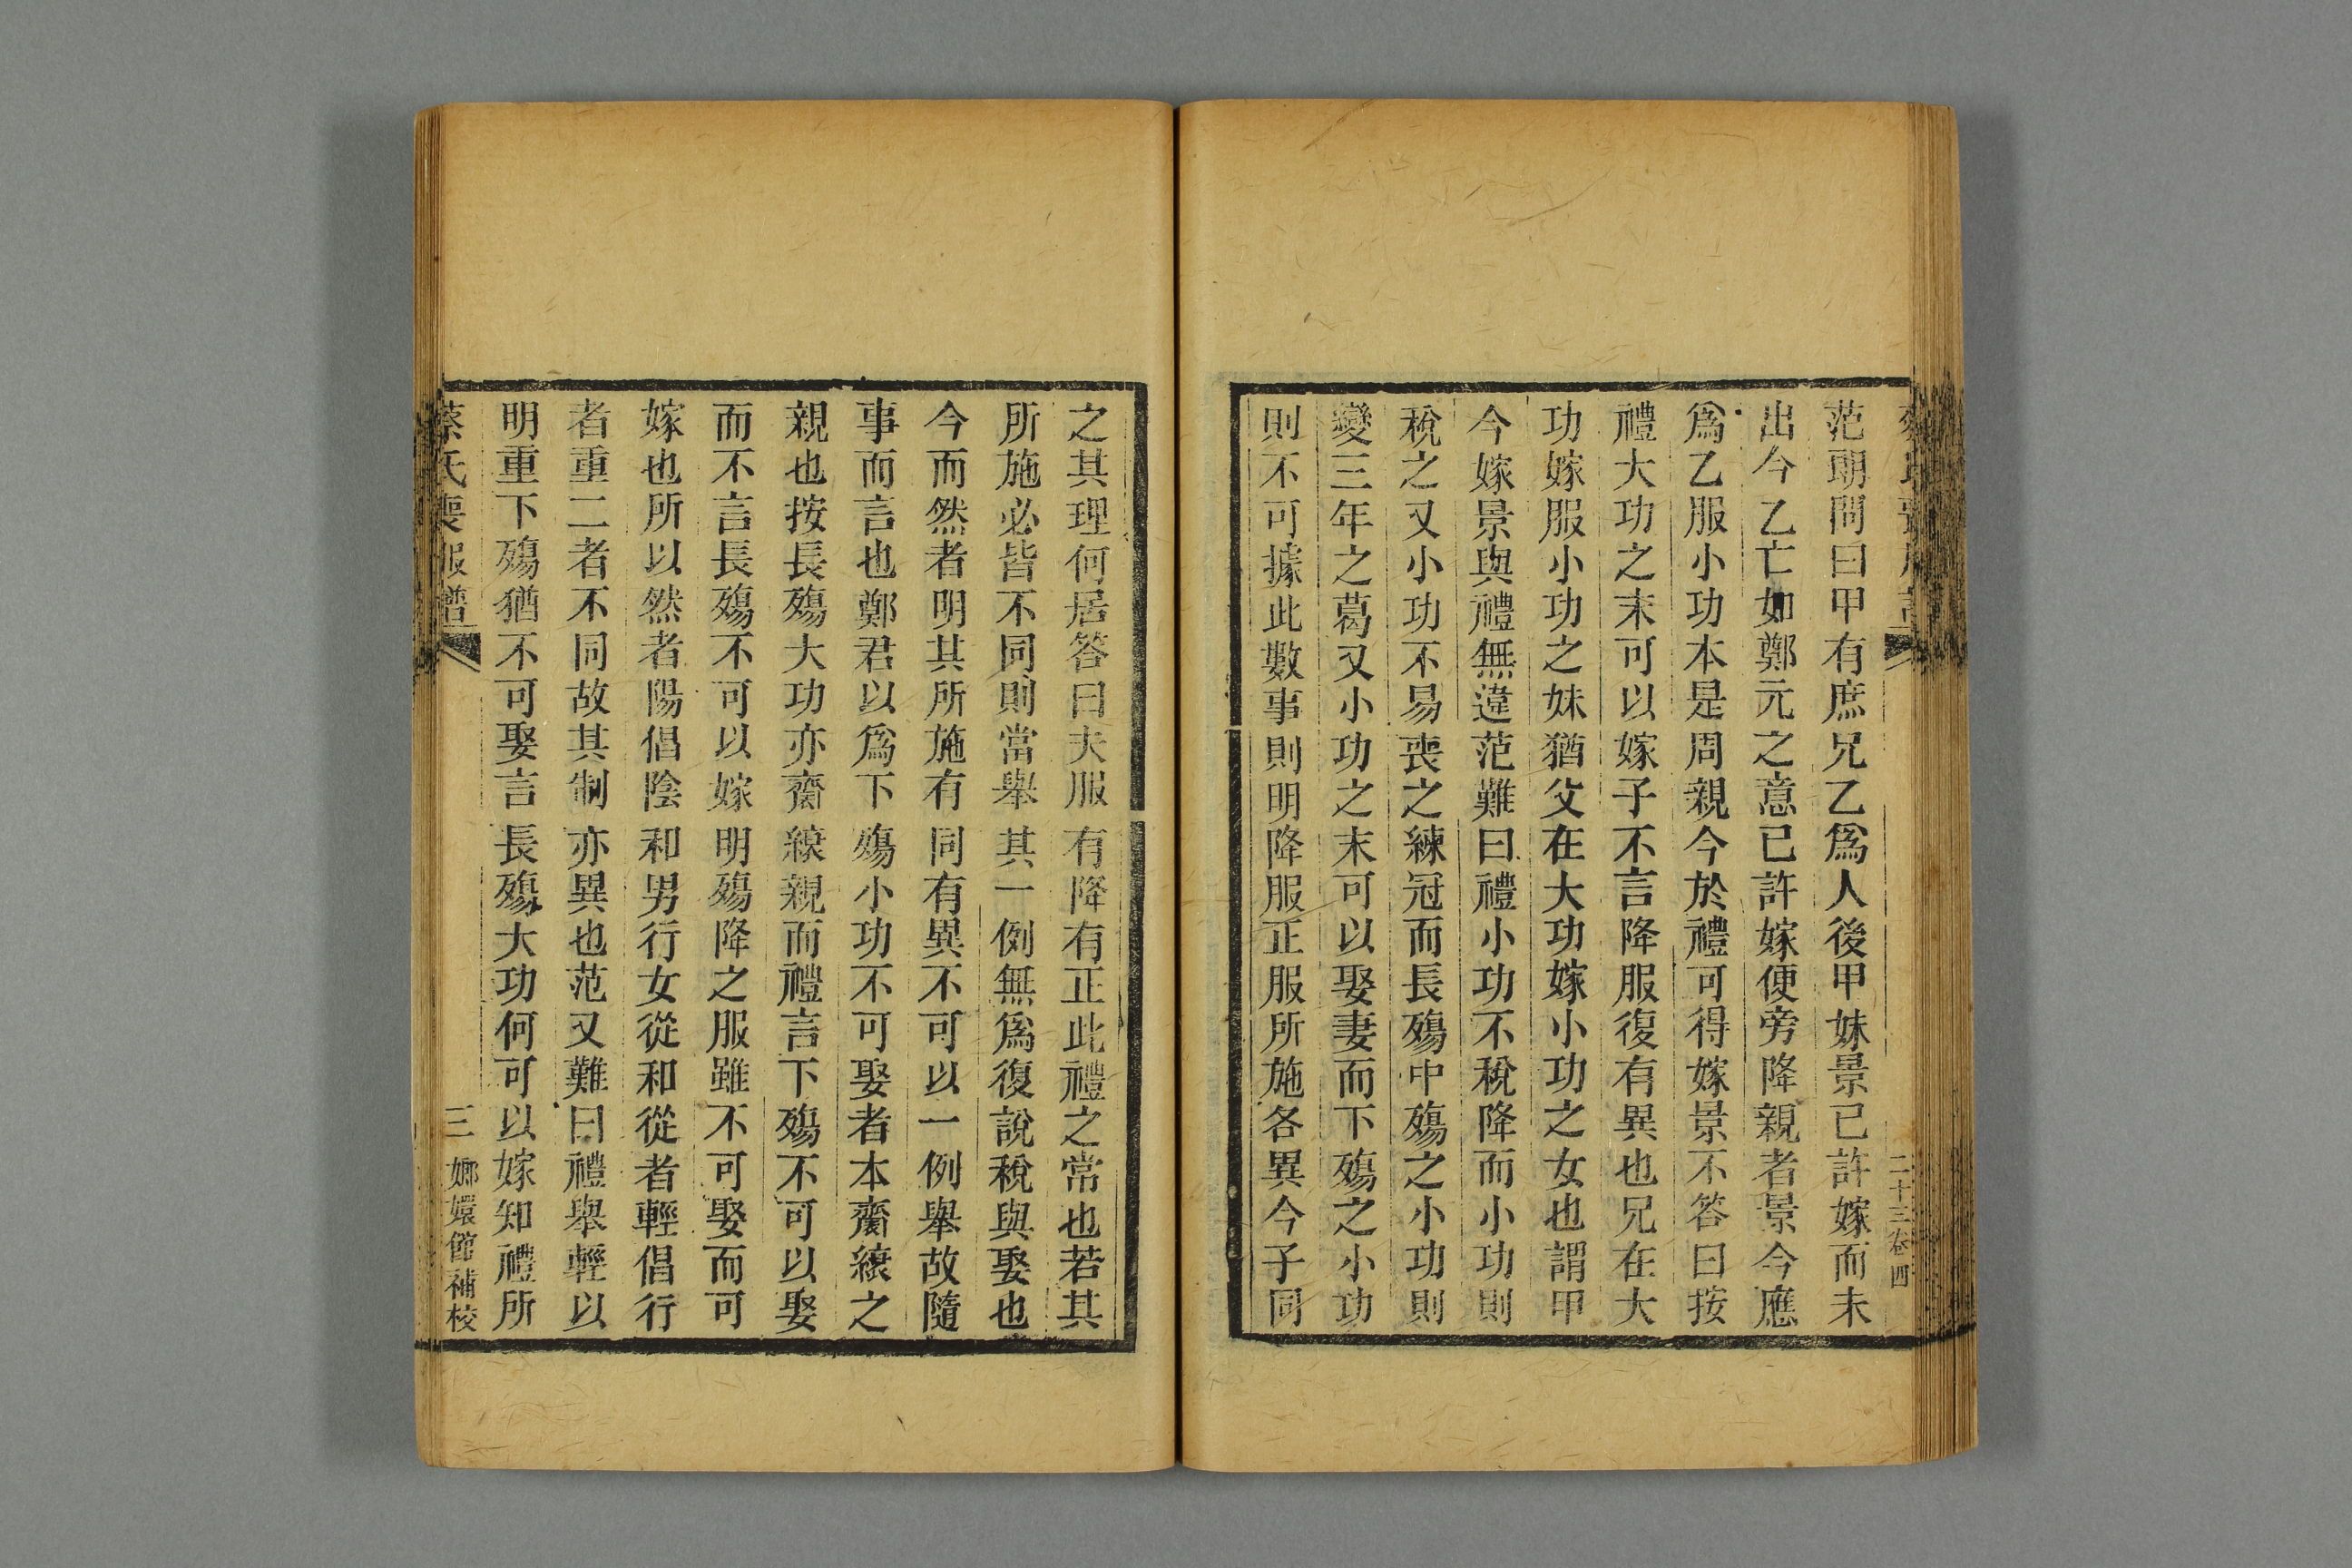 二十三卷四
范朗問曰甲有庶兄乙爲人後甲妹景已許嫁而未
出今乙亡如鄭元之意已許嫁便旁降親者景今應
爲乙服小功本是周親今於禮可得嫁景不答曰按
禮大功之末可以嫁子不言降服復有異也兄在大
功嫁服小功之妹猶父在大功嫁小功之女也謂甲
今嫁景與禮無違范難曰禮小功不稅降而小功則
稅之又小功不易喪之練冠而長殤中殤之小功則
變三年之葛又小功之末可以娶妻而下殤之小功
則不可據此數事則明降服正服所施各異今子同
之其理何居答曰夫服有降有正此禮之常也若其
所施必皆不同則當舉其一例無爲復說稅與娶也
今而然者明其所施有同有異不可以一例舉故隨
事而言也鄭君以爲下殤小功不可娶者本齊縗之
親也按長殤大功亦齊縗親而禮言下殤不可以娶
而不言長殤不可以嫁明殤降之服雖不可娶而可
嫁也所以然者陽倡陰和男行女從和從者輕倡行
者重二者不同故其制亦異也范又難曰禮舉輕以
明重下殤猶不可娶言長殤大功何可以嫁知禮所
蔡氏喪服譜 三 嫏嬛館補校